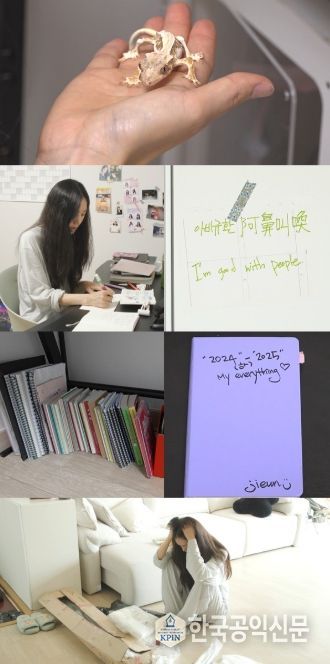 아비규환 阿鼻叫喚
I'm good with people
"2024" - "2025"
My everything♡
jieun
KPIN
한국공익신문